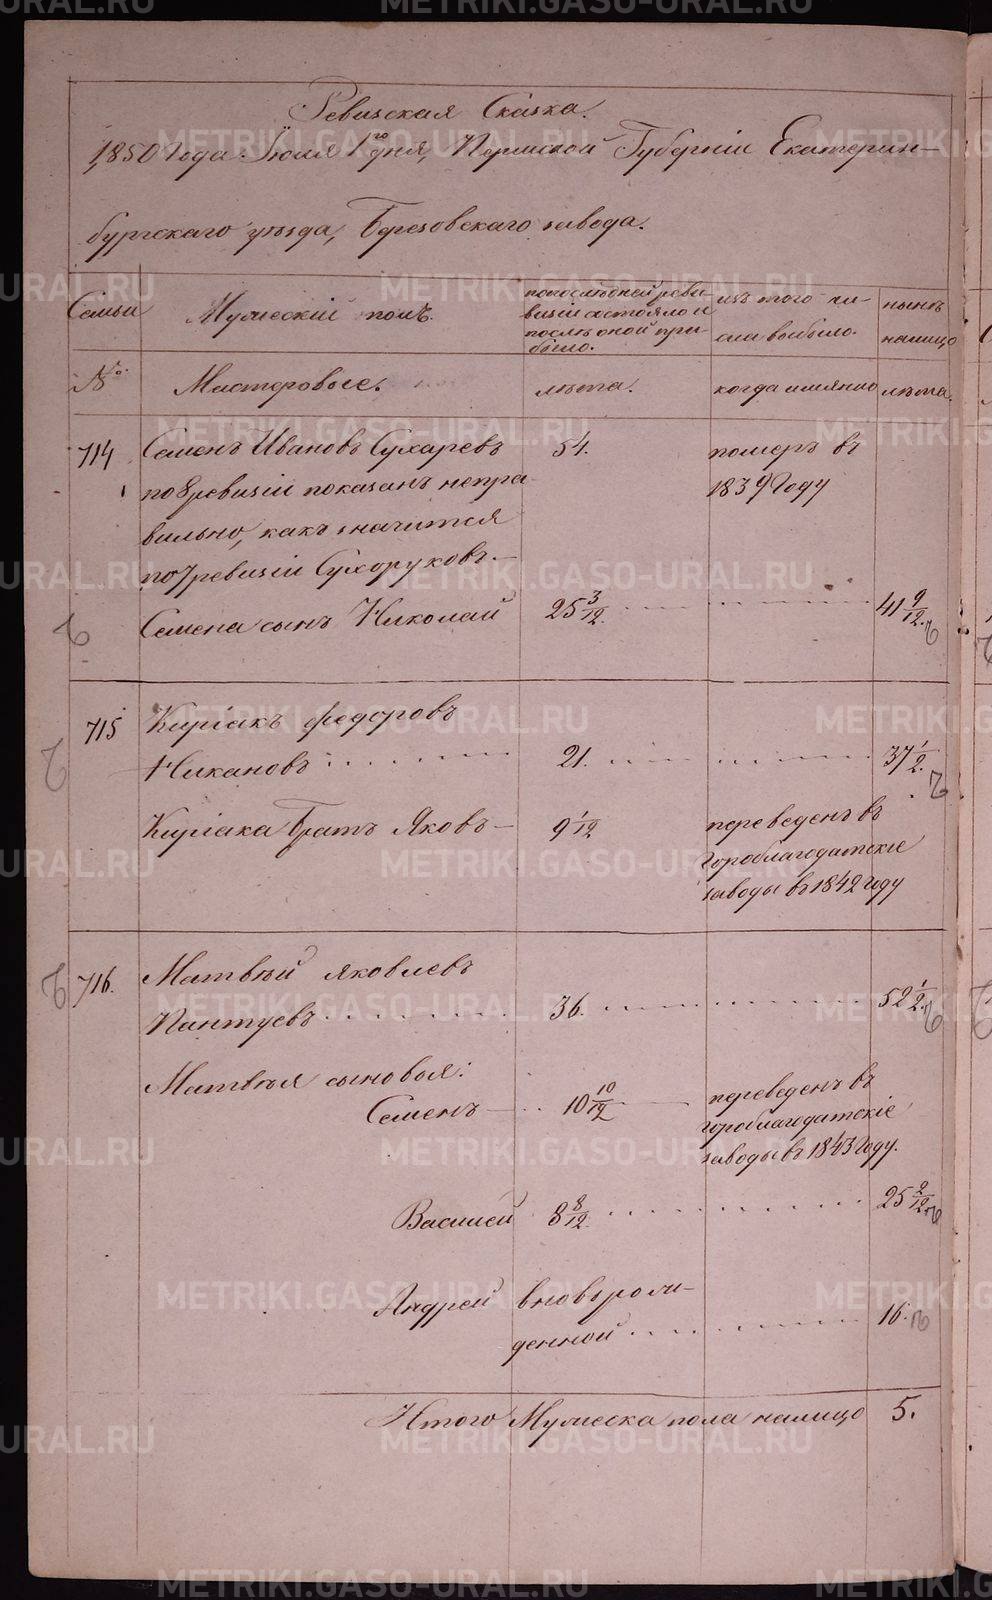 Ревизская Сказка.
1850 Года Июля 1го дня, Пермской Губерніи Екатерин-
бургскаго уѣзда, Березовскаго завода.
Семьи
Мужескій полъ.
попослѣдней реви-
візіи состояло и
послѣ оной при-
было.
изъ того чи-
сла выбыло.
нынѣ
налицо
№
Мастеровые.
лѣта.
когда имянно
лѣта.
714
Семенъ Ивановъ Сухаревъ
54.
померъ въ
по 8 ревизіи показанъ непра-
1839 Году
вильно, какъ значится
по 7 ревизіи Сухоруковъ.
Семена сынъ Николай
25 3/12
41 9/12.
715
Киріакъ Федоровъ
Никановъ
21.
37 1/2.
Киріака братъ Яковъ
9 1/12
переведенъ въ
Гороблагодатскіе
заводы въ 1842 Году
716.
Матвѣй Яковлевъ
Пантуевъ
36.
52 1/2.
Матвѣя сыновья:
Семенъ
10 10/12
переведенъ въ
гороблагодатскіе
заводы въ 1843 Году.
Василей
8 8/12
25 2/12
Андрей
вновьрож-
денной
16.
Итого Мужеска пола налицо
5.
METRIKI.GASO-URAL.RU